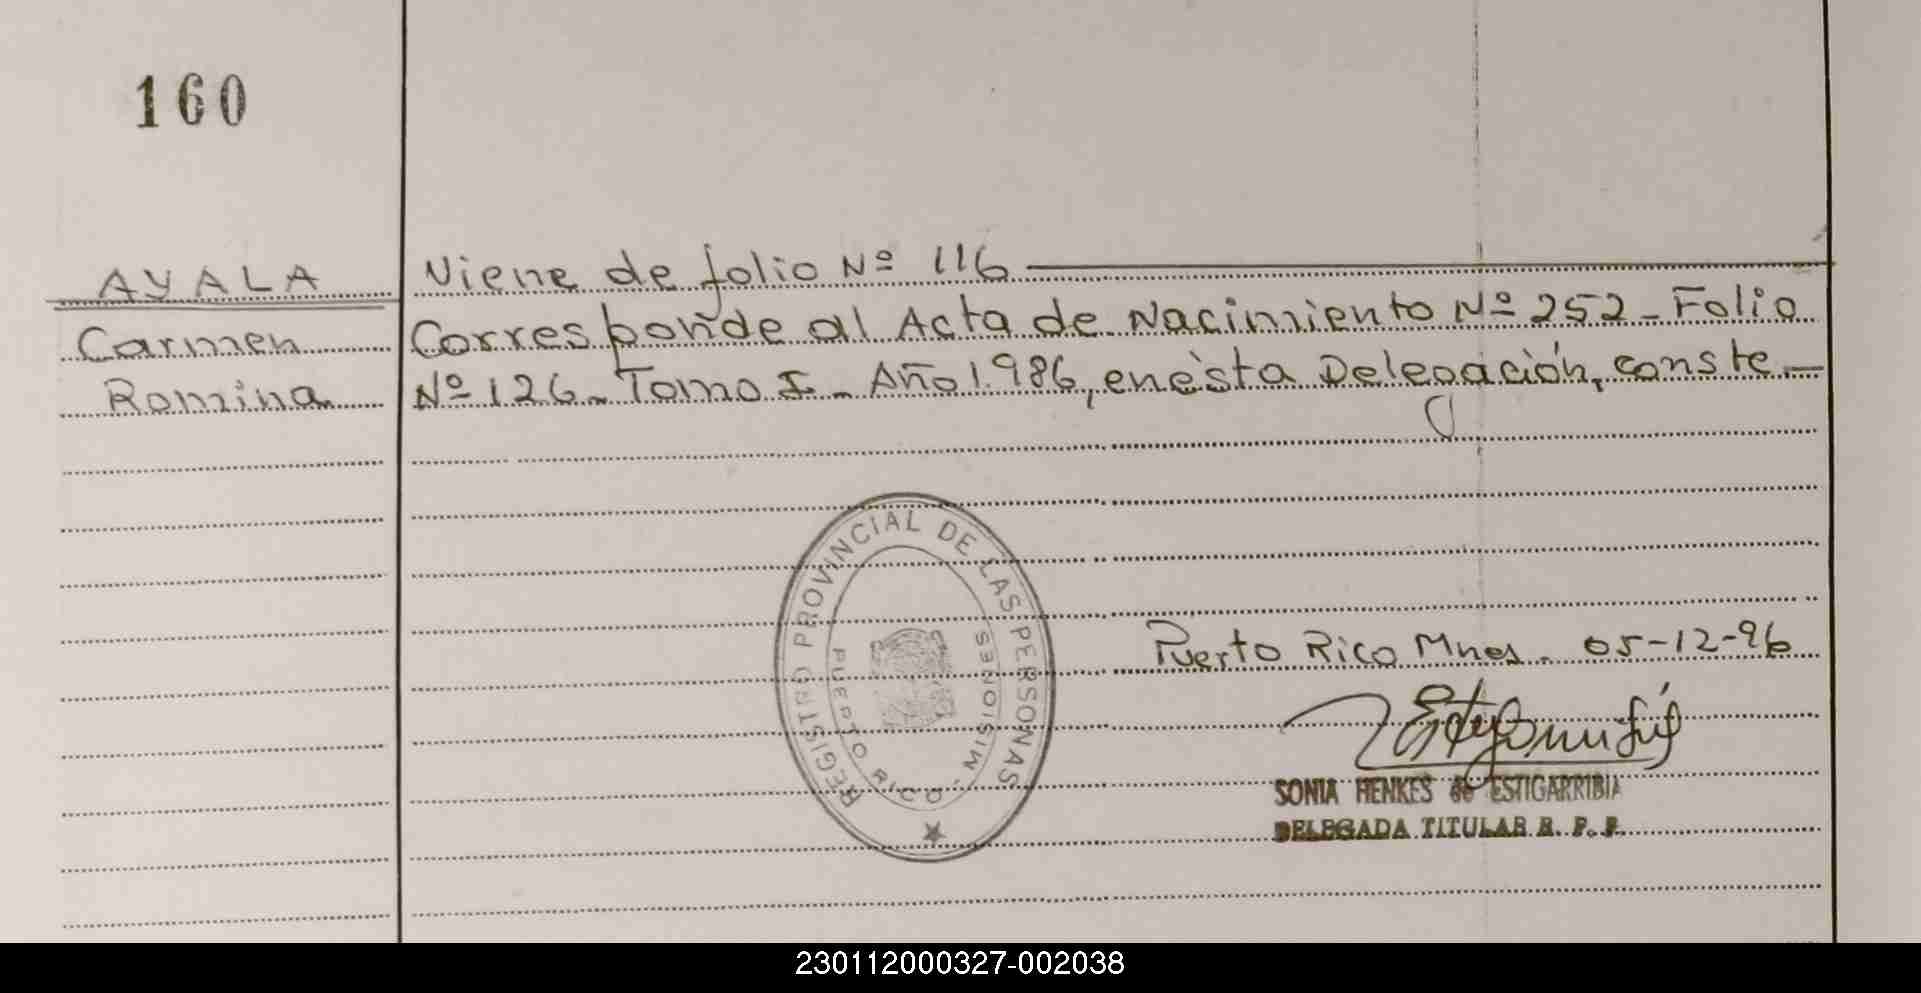 160
AYALA
Carmen
Romina
Viene de folio Nº 116
Corresponde al Acta de Nacimiento Nº 252 - Folio
Nº 126 - Tomo I - Año 1.986, en ésta Delegación, conste.-
REGISTRO PROVINCIAL DE LAS PERSONAS
PUERTO RICO - MISIONES
Puerto Rico Mnes. 05-12-96
SONIA HENKES de ESTIGARRIBIA
DELEGADA TITULAR R. P. P.
230112000327-002038